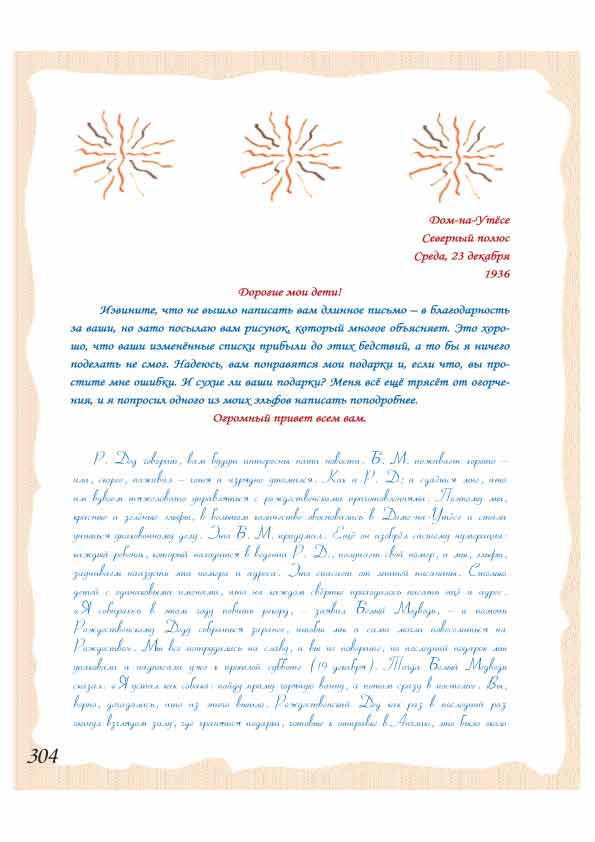 Дом-на-Утёсе
Северный полюс
Среда, 23 декабря
1936
Дорогие мои дети!
Извините, что не вышло написать вам длинное письмо – в благодарность
за ваши, но зато посылаю вам рисунок, который многое объясняет. Это хоро-
шо, что ваши изменённые списки прибыли до этих бедствий, а то бы я ничего
поделать не смог. Надеюсь, вам понравятся мои подарки и, если что, вы про-
стите мне ошибки. И сухие ли ваши подарки? Меня всё ещё трясёт от огорче-
ния, и я попросил одного из моих эльфов написать поподробнее.
Огромный привет всем вам.
Р. Дед говорит, вам будут интересны наши новости. Б. М. поживает хорошо –
или, скорее, поживал – хотя и изрядно утомился. Как и Р. Д; и сдаётся мне, что
им вдвоём тяжеловато управляться с рождественскими приготовлениями. Поэтому мы,
красные и зелёные эльфы, в большом количестве обосновались в Доме-на-Утёсе и стали
учиться упаковочному делу. Это Б. М. придумал. Ещё он изобрёл систему нумерации:
каждый ребёнок, который находится в ведении Р. Д., получает свой номер, а мы, эльфы,
заучиваем наизусть эти номера и адреса. Это спасает от лишней писанины. Столько
детей с одинаковыми именами, что на каждом свёртке приходилось писать ещё и адрес.
«Я собираюсь в этом году побить рекорд, – заявил Белый Медведь, – и помочь
Рождественскому Деду собраться заранее, чтобы мы и сами могли повеселиться на
Рождество». Мы все потрудились на славу, и вы не поверите, но последний подарок мы
упаковали и надписали уже к прошлой субботе (19 декабря). Тогда Белый Медведь
сказал: «Я устал как собака: пойду приму горячую ванну, а потом сразу в постель». Вы,
верно, догадались, что из этого вышло. Рождественский Дед как раз в последний раз
окинул взглядом залу, где хранятся подарки, готовые к отправке в Англию, это было около
304